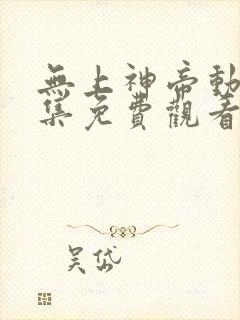 無上神帝動
集免費觀看
吴岱